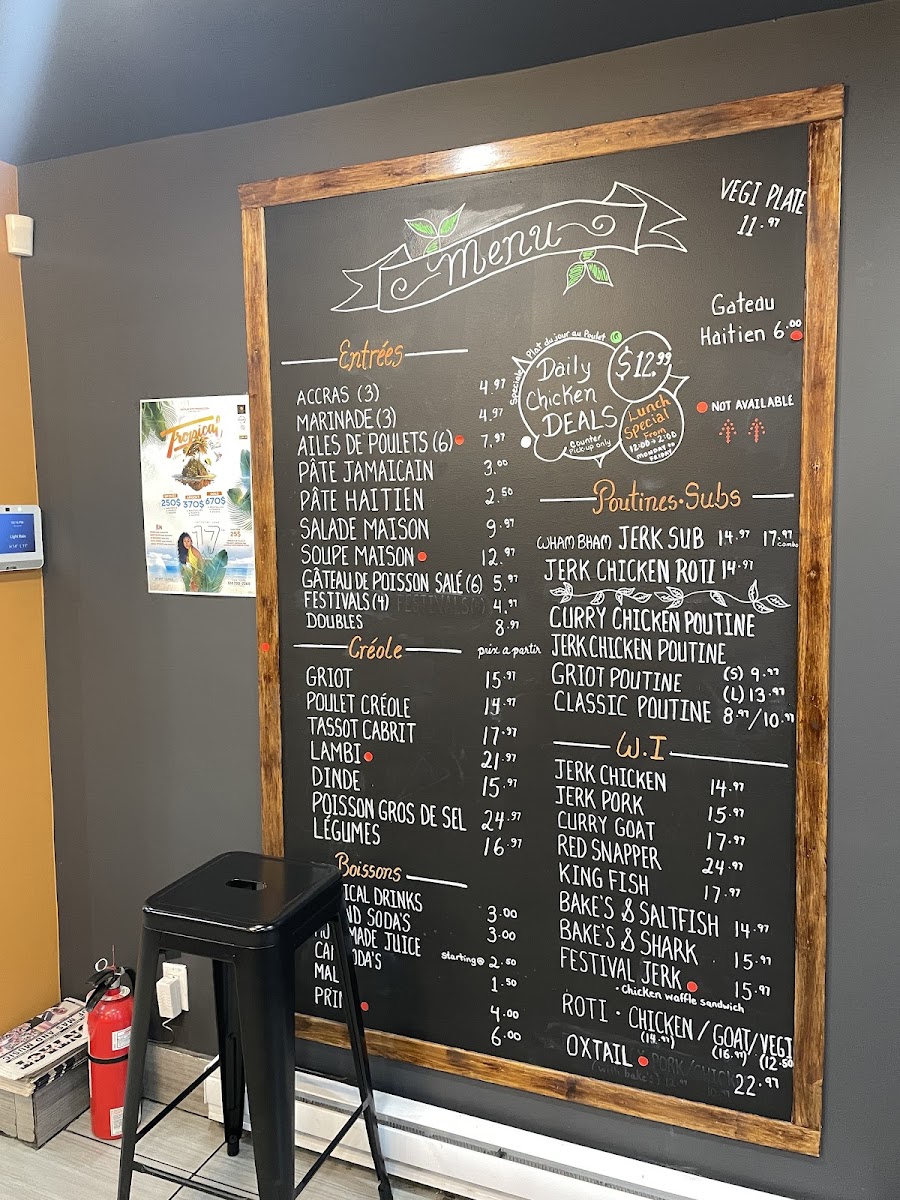 Menu
VEGI PLATE
11.97
Gateau
Haitien 6.00
Speciale Plat du jour au Poulet
Daily
Chicken
DEALS
Counter
Pick-up only
$12.99
Lunch
Special
From
12:00 - 2:00
MONDAY to
FRIDAY
NOT AVAILABLE
Entrées
ACCRAS (3) 4.97
MARINADE (3) 4.97
AILES DE POULETS (6) 7.97
PÂTE JAMAICAIN 3.00
PÂTE HAITIEN 2.50
SALADE MAISON 9.97
SOUPE MAISON 12.97
GÂTEAU DE POISSON SALÉ (6) 5.97
FESTIVALS (4) 4.97
DOUBLES 8.97
Créole prix a partir
GRIOT 15.97
POULET CRÉOLE 14.97
TASSOT CABRIT 17.97
LAMBI 21.97
DINDE 15.97
POISSON GROS DE SEL 24.97
LÉGUMES 16.97
Boissons
ICAL DRINKS 3.00
ND SODA'S 3.00
MADE JUICE starting@ 2.50
CA ODA'S 1.50
MAL 4.00
PRI 6.00
Poutines • Subs
WHAM BHAM JERK SUB 14.97 17.97
combo
JERK CHICKEN ROTI 14.97
CURRY CHICKEN POUTINE
JERK CHICKEN POUTINE
GRIOT POUTINE (S) 9.97
(L) 13.97
CLASSIC POUTINE 8.97/10.97
W.I
JERK CHICKEN 14.97
JERK PORK 15.97
CURRY GOAT 17.97
RED SNAPPER 24.97
KING FISH 17.97
BAKE'S & SALTFISH 14.97
BAKE'S & SHARK 15.97
FESTIVAL JERK 15.97
• Chicken waffle sandwich
ROTI • CHICKEN / GOAT / VEGI
(14.97) (16.97) (12.50
OXTAIL 22.97
Tropical
250$ 370$ 670$
17
25$